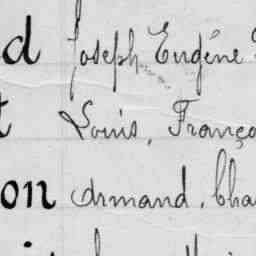 d Joseph Eugéne
t Louis, Franço
on Armand, Cha